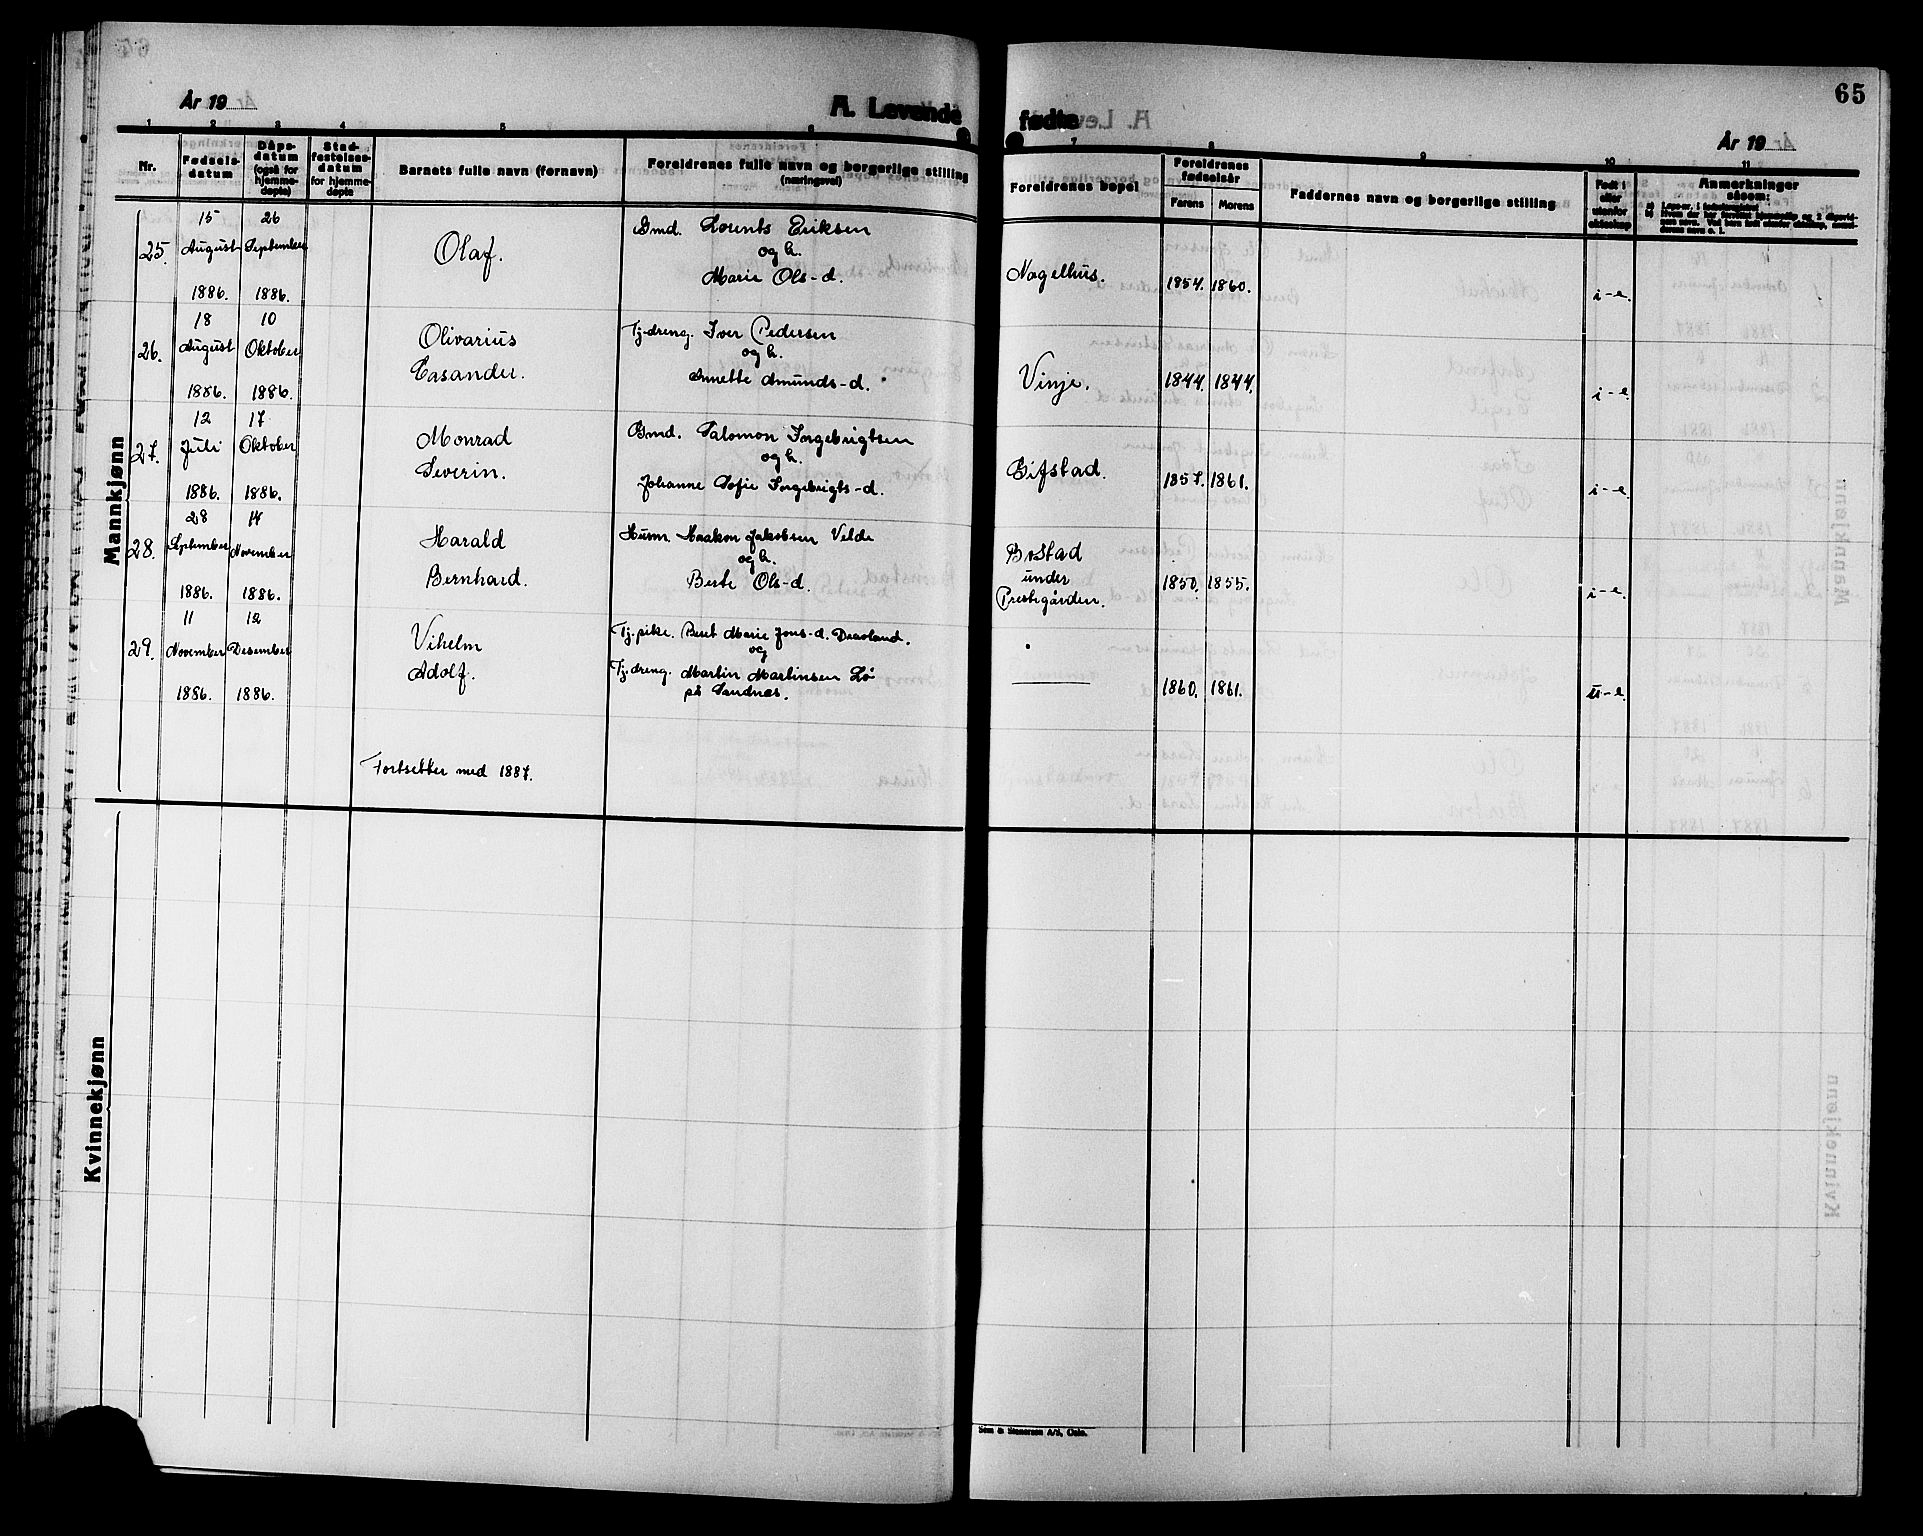 65
År 19
A. Levende fødte
År 19
1 2 3 4 5 6 7 8 9 10 11
Nr.
Fødsels-
datum
Dåps-
datum
(også for
hjemme-
døpte)
Stad-
festelses-
datum
for hjemme-
døpte
Barnets fulle navn (fornavn)
Foreldrenes fulle navn og borgerlige stilling
(næringsvei)
Foreldrenes bopel
Foreldrenes
fødselsår
Farens Morens
Faddernes navn og borgerlige stilling
Født i
eller
utenfor
ekteskap
Anmerkninger
såsom:
Mannkjønn
25. 15 August 1886. 26 September 1886.
Olaf.
Gmd. Lorents Eriksen
og h.
Marie Ols-d.
Nagelhus. 1854. 1860. i-e.
26. 18 August 1886. 10 Oktober 1886.
Olivarius
Casander.
Tj.dreng. Iver Pedersen
og h.
Annette Amunds-d.
Vinje. 1844. 1844. i-e.
27. 12 Juli 1886. 17 Oktober 1886.
Monrad
Severin.
Gmd. Salomon Ingebrigtsen
og h.
Johanne Sofie Ingebrigts-d.
Gifstad. 1857. 1861. i-e.
28. 28 September 1886. 14 November 1886.
Harald
Bernhard.
Husm. Haakon Jakobsen Velde
og h.
Berte Ols-d.
Bostad
under
Prestegården. 1850. 1855. i-e.
29. 11 November 1886. 12 Desember 1886.
Vihelm
Adolf.
Tj.pike. Beret Marie Jons-d. Dravland.
og
Tj.dreng. Martin Martinsen Lø
på Sandnes.
1860. 1861. u-e.
Fortsetter med 1887.
Kvinnekjønn
Sem & Stenersen A/S, Oslo.